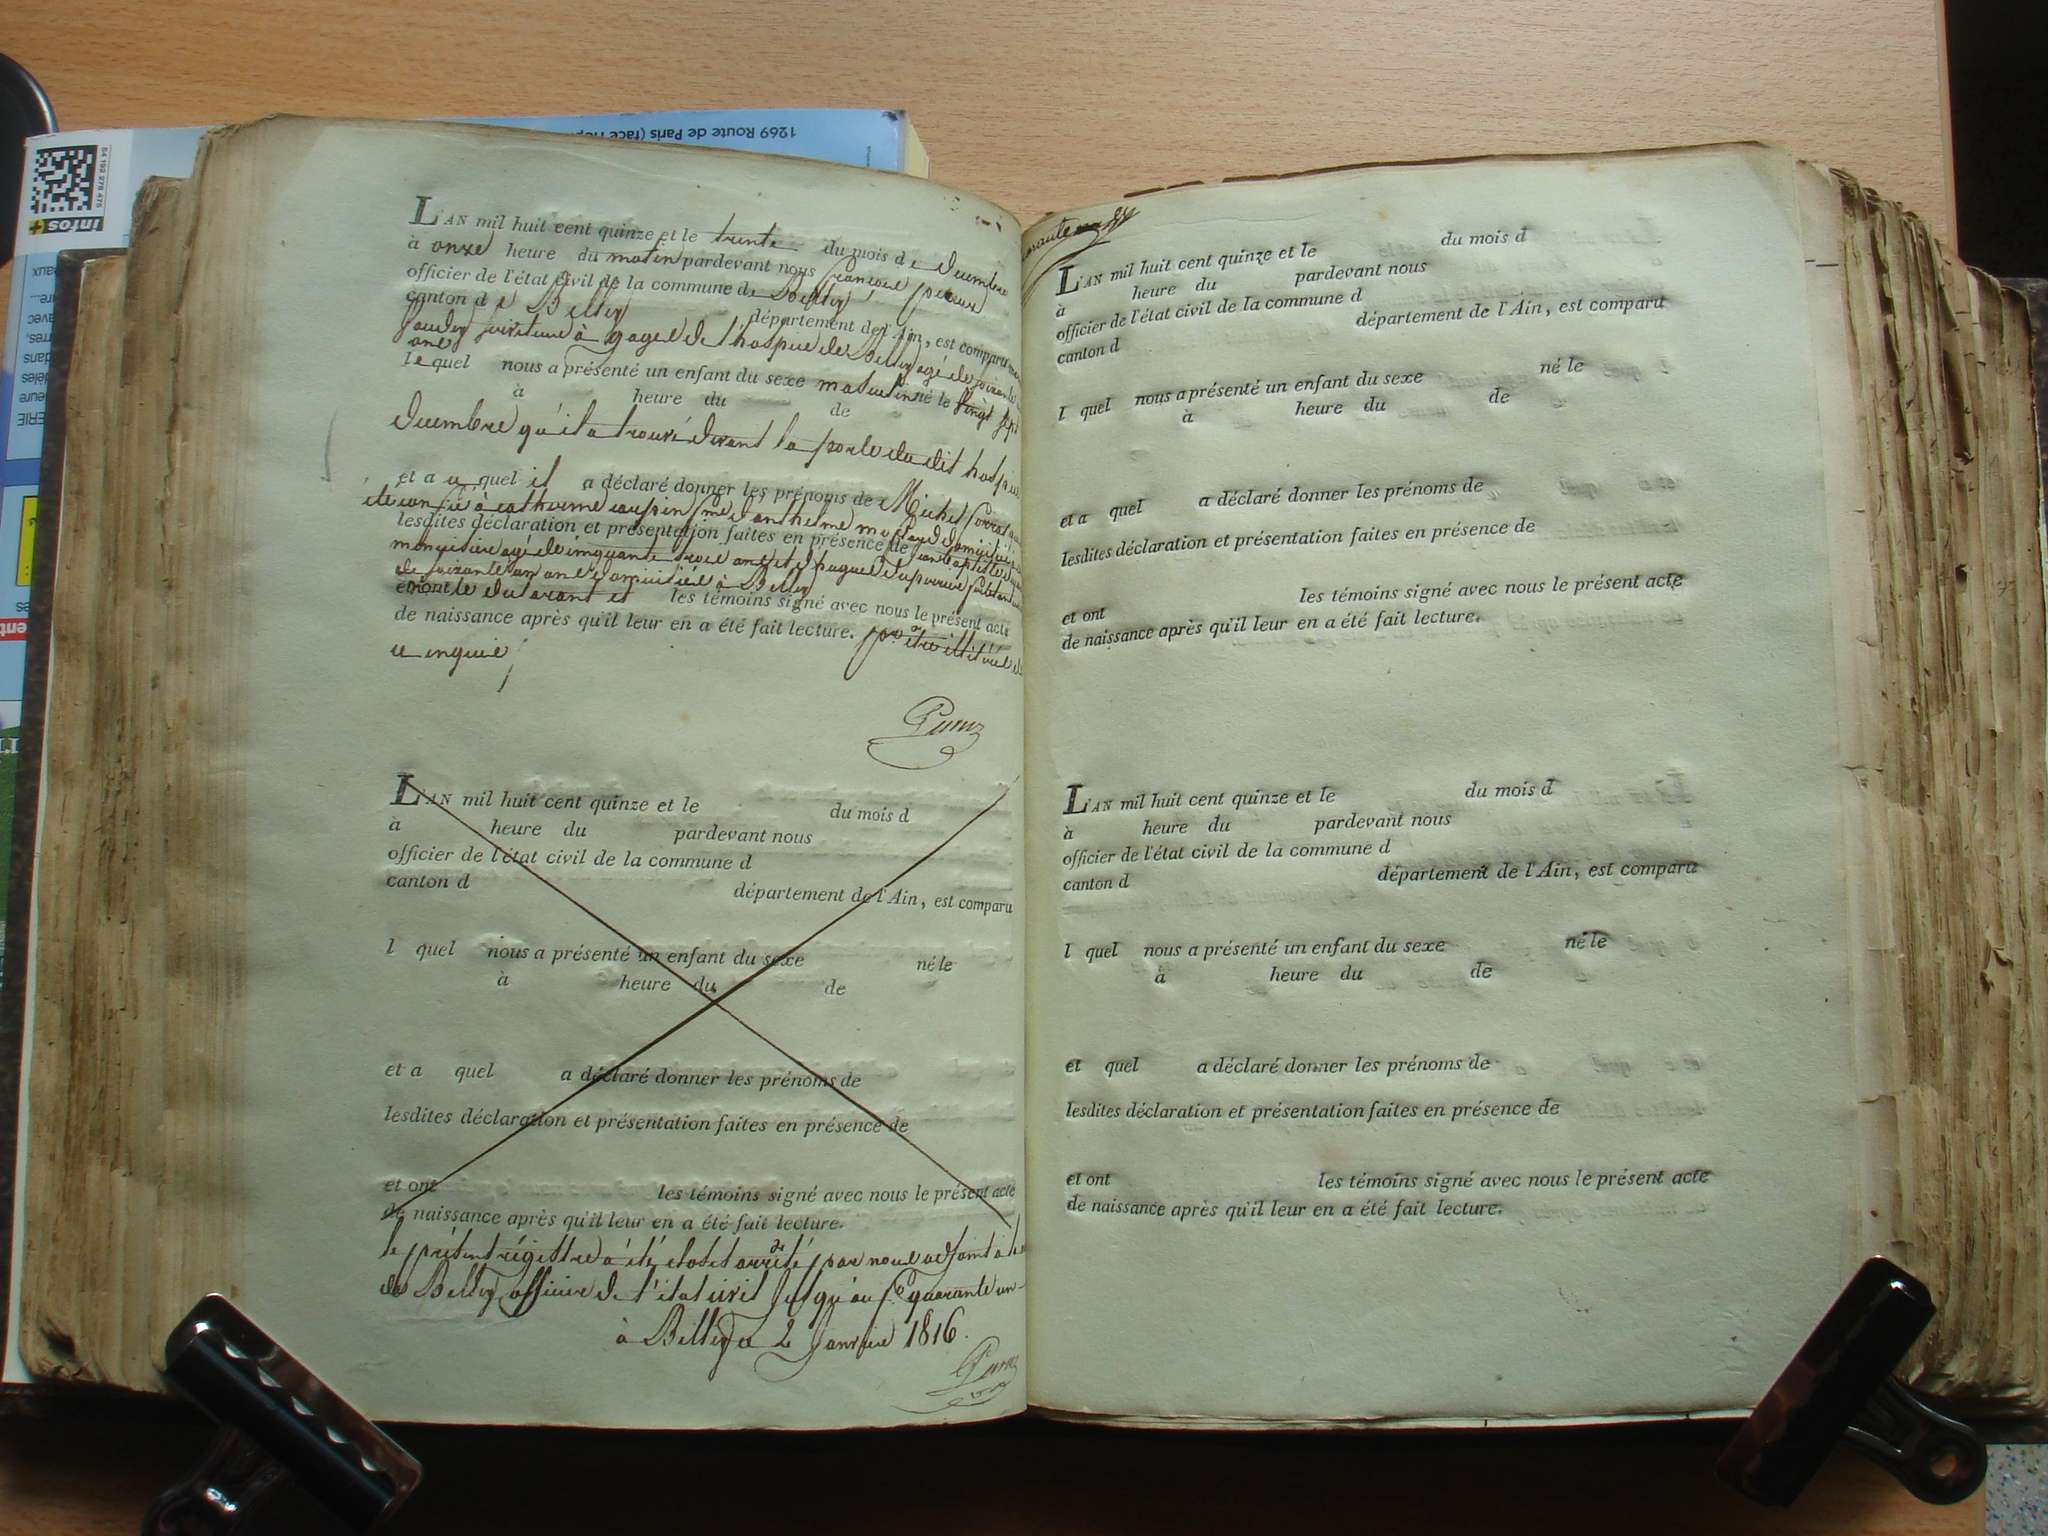 1269 Route de Paris (face
54 192 278 475
infos+
L'AN mil huit cent quinze et le trente du mois de decembre
à onze heure du matin pardevant nous françois
officier de l'état civil de la commune de Belley
canton de Belley département de l'Ain, est comparu
à gages de l'hospice de Belley agé de soixante
ans
le quel nous a présenté un enfant du sexe masculin né le vingt sept
à heure du de
decembre qu'il a trouvé devant la porte du dit hospice
et a u quel il a déclaré donner les prénoms de Michel
été confié à catherine
lesdites déclaration et présentation faites en présence de
agé de cinquante trois ans et de
de soixante un ans domiciliés à Belley
et ont le les témoins signé avec nous le présent acte
de naissance après qu'il leur en a été fait lecture. pour être illitérés de
ce enquis
L'AN mil huit cent quinze et le du mois d
à heure du pardevant nous
officier de l'état civil de la commune d
canton d département de l'Ain, est comparu
l quel nous a présenté un enfant du sexe né le
à heure du de
et a quel a déclaré donner les prénoms de
lesdites déclaration et présentation faites en présence de
et ont les témoins signé avec nous le présent acte
de naissance après qu'il leur en a été fait lecture.
le présent régistre a été clos et arrêté par nous adjoint
de Belley officier de l'état civil jusqu'au quarante un
à Belley ce 2 Janvier 1816.
L'AN mil huit cent quinze et le du mois d
à heure du pardevant nous
officier de l'état civil de la commune d
canton d département de l'Ain, est comparu
l quel nous a présenté un enfant du sexe né le
à heure du de
et a quel a déclaré donner les prénoms de
lesdites déclaration et présentation faites en présence de
et ont les témoins signé avec nous le présent acte
de naissance après qu'il leur en a été fait lecture.
L'AN mil huit cent quinze et le du mois d
à heure du pardevant nous
officier de l'état civil de la commune d
canton d département de l'Ain, est comparu
l quel nous a présenté un enfant du sexe né le
à heure du de
et quel a déclaré donner les prénoms de
lesdites déclaration et présentation faites en présence de
et ont les témoins signé avec nous le présent acte
de naissance après qu'il leur en a été fait lecture.